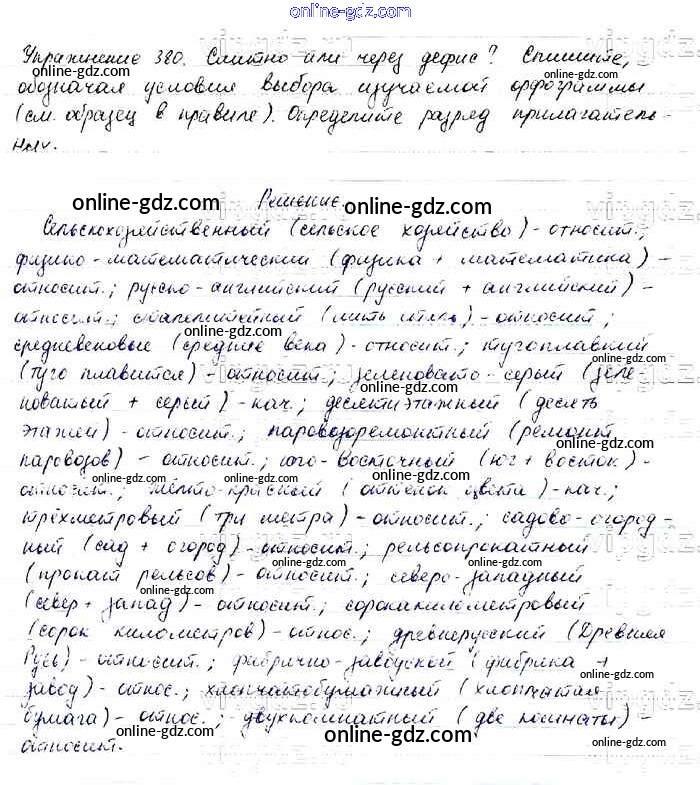 online-gdz.com
Упражнение 380. Слитно или через дефис? Спишите,
обозначая условия выбора изучаемой орфограммы
(см. образец в правиле). Определите разряд прилагатель-
ных.
Решение
online-gdz.com online-gdz.com
Сельскохозяйственный (сельское хозяйство) - относит.;
физико-математический (физика + математика) -
относит.; русско-английский (русский + английский) -
относит.; сталелитейный (лить сталь) - относит.;
средневековые (средние века) - относит.; тугоплавкий
(туго плавится) - относит.; зеленовато-серый (зеле-
новатый + серый) - кач.; десятиэтажный (десять
этажей) - относит.; паровозоремонтный (ремонт
паровозов) - относит.; юго-восточный (юг + восток) -
относит.; жёлто-красный (оттенок цвета) - кач.;
трёхметровый (три метра) - относит.; садово-огород-
ный (сад + огород) - относит.; рельсопрокатный
(прокат рельсов) - относит.; северо-западный
(север + запад) - относит.; сорокакилометровый
(сорок километров) - относ.; древнерусский (Древняя
Русь) - относит.; фабрично-заводской (фабрика +
завод) - относ.; хлопчатобумажный (хлопчатая
бумага) - относ.; двухкомнатный (две комнаты) -
относит.
online-gdz.com online-gdz.com